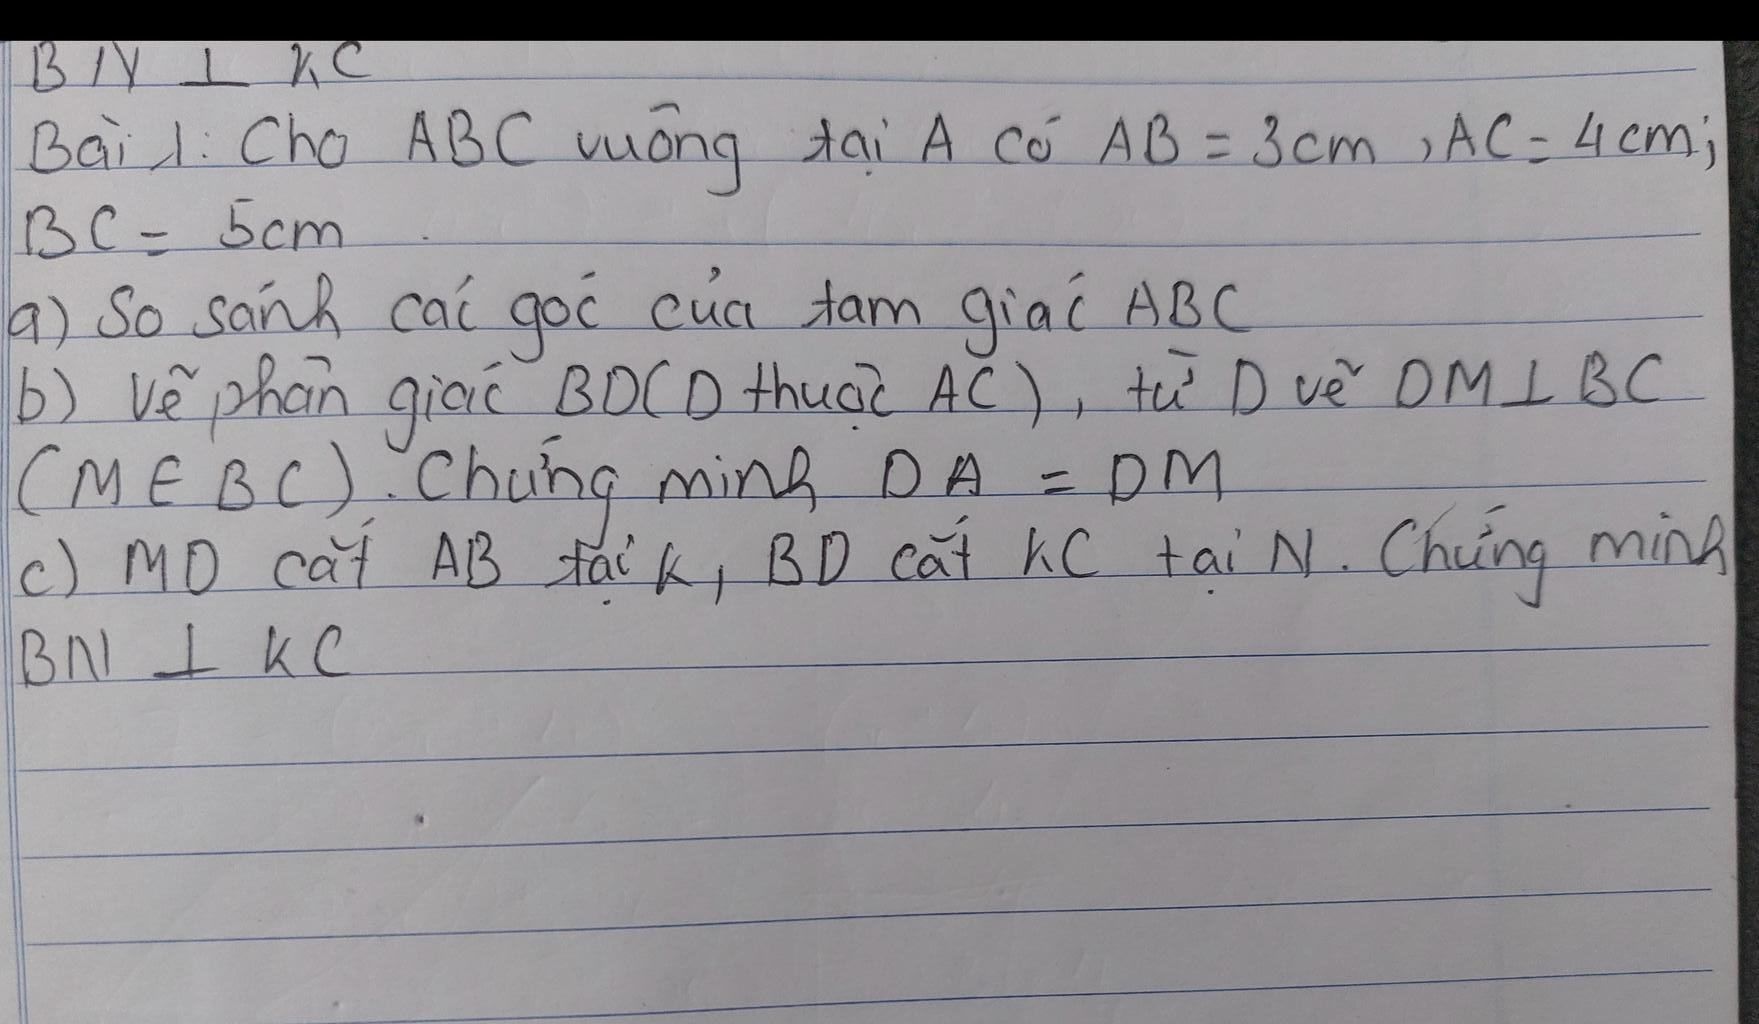 BN ⊥ KC
Bài 1: Cho ABC vuông tại A có AB = 3cm, AC = 4cm;
BC = 5cm
a) So sánh các góc của tam giác ABC
b) Vẽ phân giác BD(D thuộc AC), từ D vẽ DM⊥BC
(M ∈ BC). Chứng minh DA = DM
c) MD cắt AB tại K, BD cắt KC tại N. Chứng minh
BN ⊥ KC